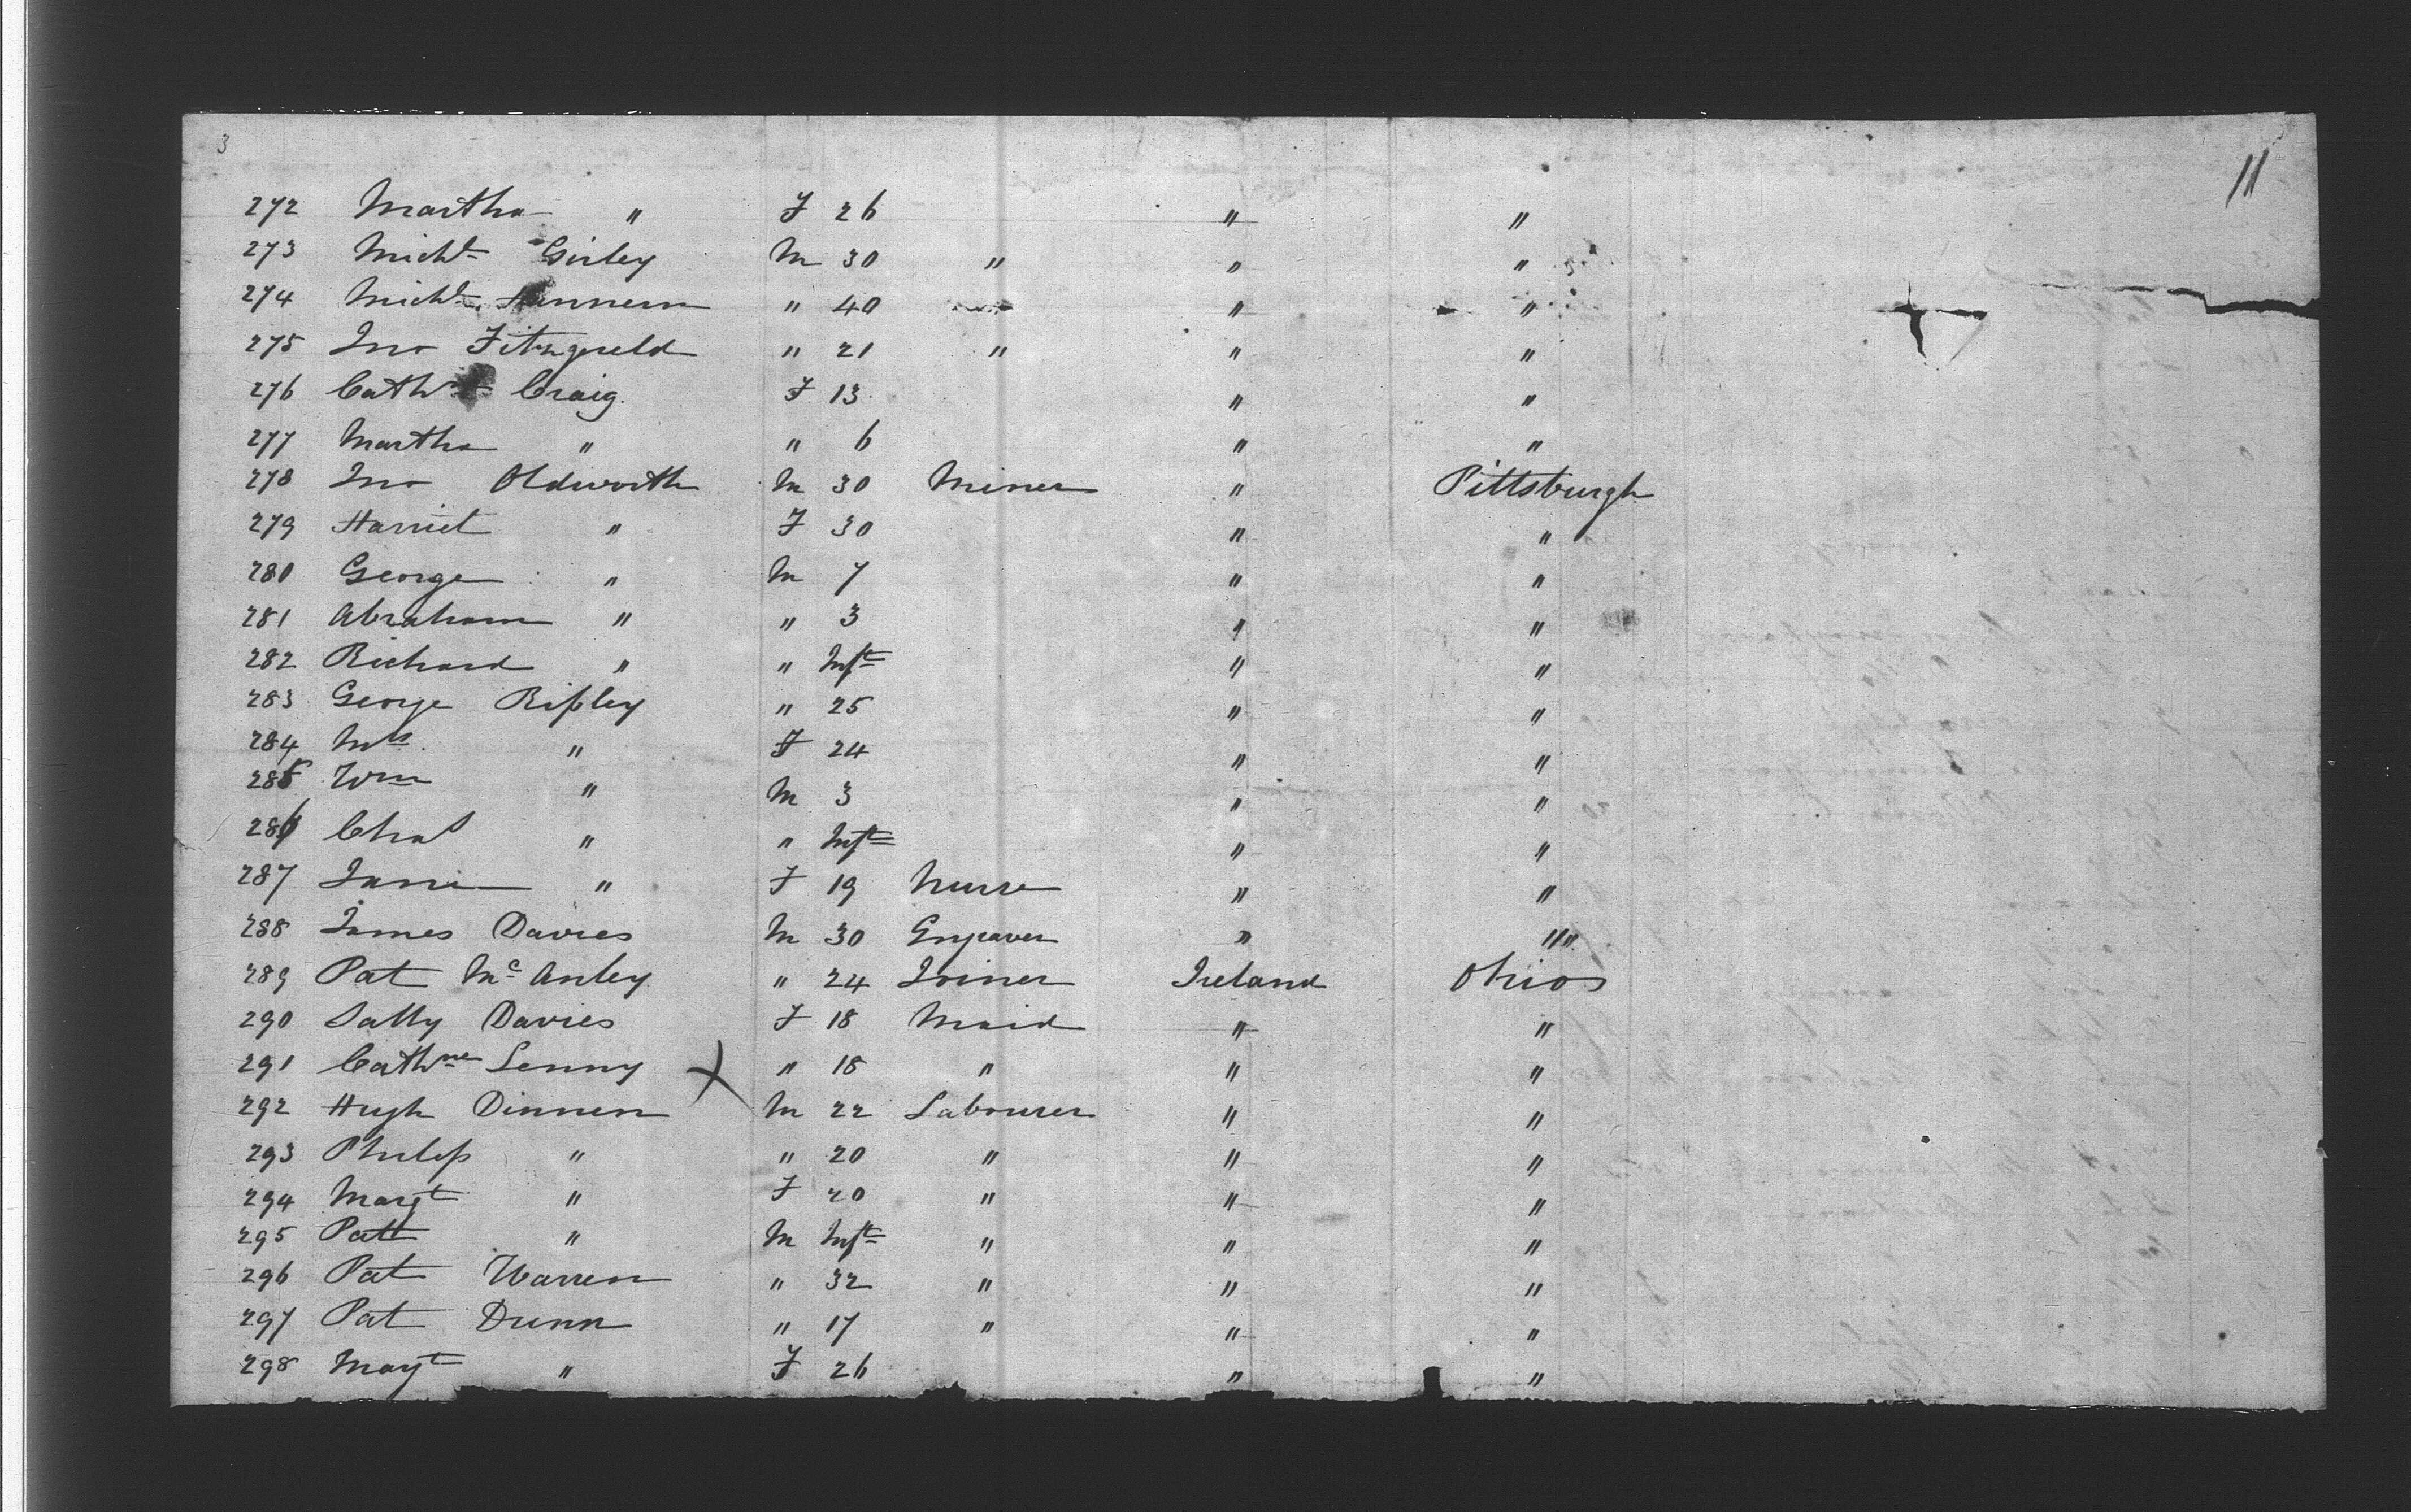 3
11
272 Martha " F 26 " "
273 Michl Girley M 30 " " "
274 Michl " 40 " "
275 Jno Fitzgerald " 21 " " "
276 Cathne Craig. F 13 " "
277 Martha " " 6 " "
278 Jno Oldworth M 30 Miner " Pittsburgh
279 Harriet " F 30 " "
280 George " M 7 " "
281 Abraham " " 3 " "
282 Richard " " Inft " "
283 George Ripley " 25 " "
284 Mrs. " F 24 " "
285 Wm " M 3 " "
286 Chas " " Inft " "
287 Jane " F 19 Nurse " "
288 James Davies M 30 Engraver " "
289 Pat Mc Anley " 24 Joiner Ireland Ohio
290 Sally Davies F 18 Maid " "
291 Cathne Lenny X " 18 " " "
292 Hugh Dinnen M 22 Labourer " "
293 Philip " " 20 " " "
294 Margt " F 20 " " "
295 Patt " M Inft " " "
296 Pat Warren " 32 " " "
297 Pat Dunn " 17 " " "
298 Magt " F 26 " "